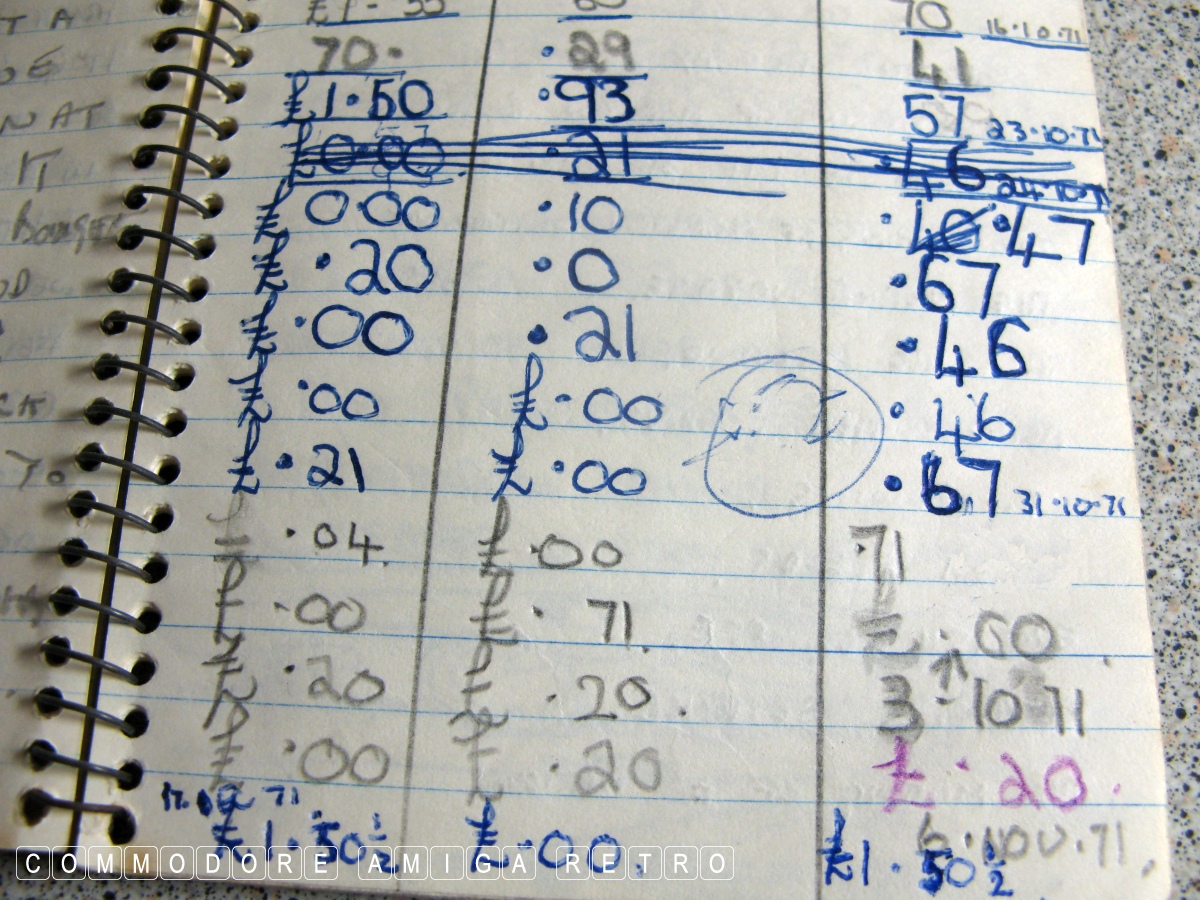 T A £1 - 55 60 70 16.10.71
70. .29 41
NAT £1.50 .93 57 23.10.71
£0.00 .21 .46 24.10.71
£0.00 .10 .47
£ .20 .0 .67
£ .00 .21 .46
£ .00 £ .00 .46
TO £ .21 £ .00 .67 31.10.71
£ .04 £ .00 .71
£ .00 £ .71
£ .20 £ .20 3 - 10 71
£ .00 £ .20 £ .20
71 6.NOV.71
£1.50½ £.00 £1.50½
COMMODORE AMIGA RETRO